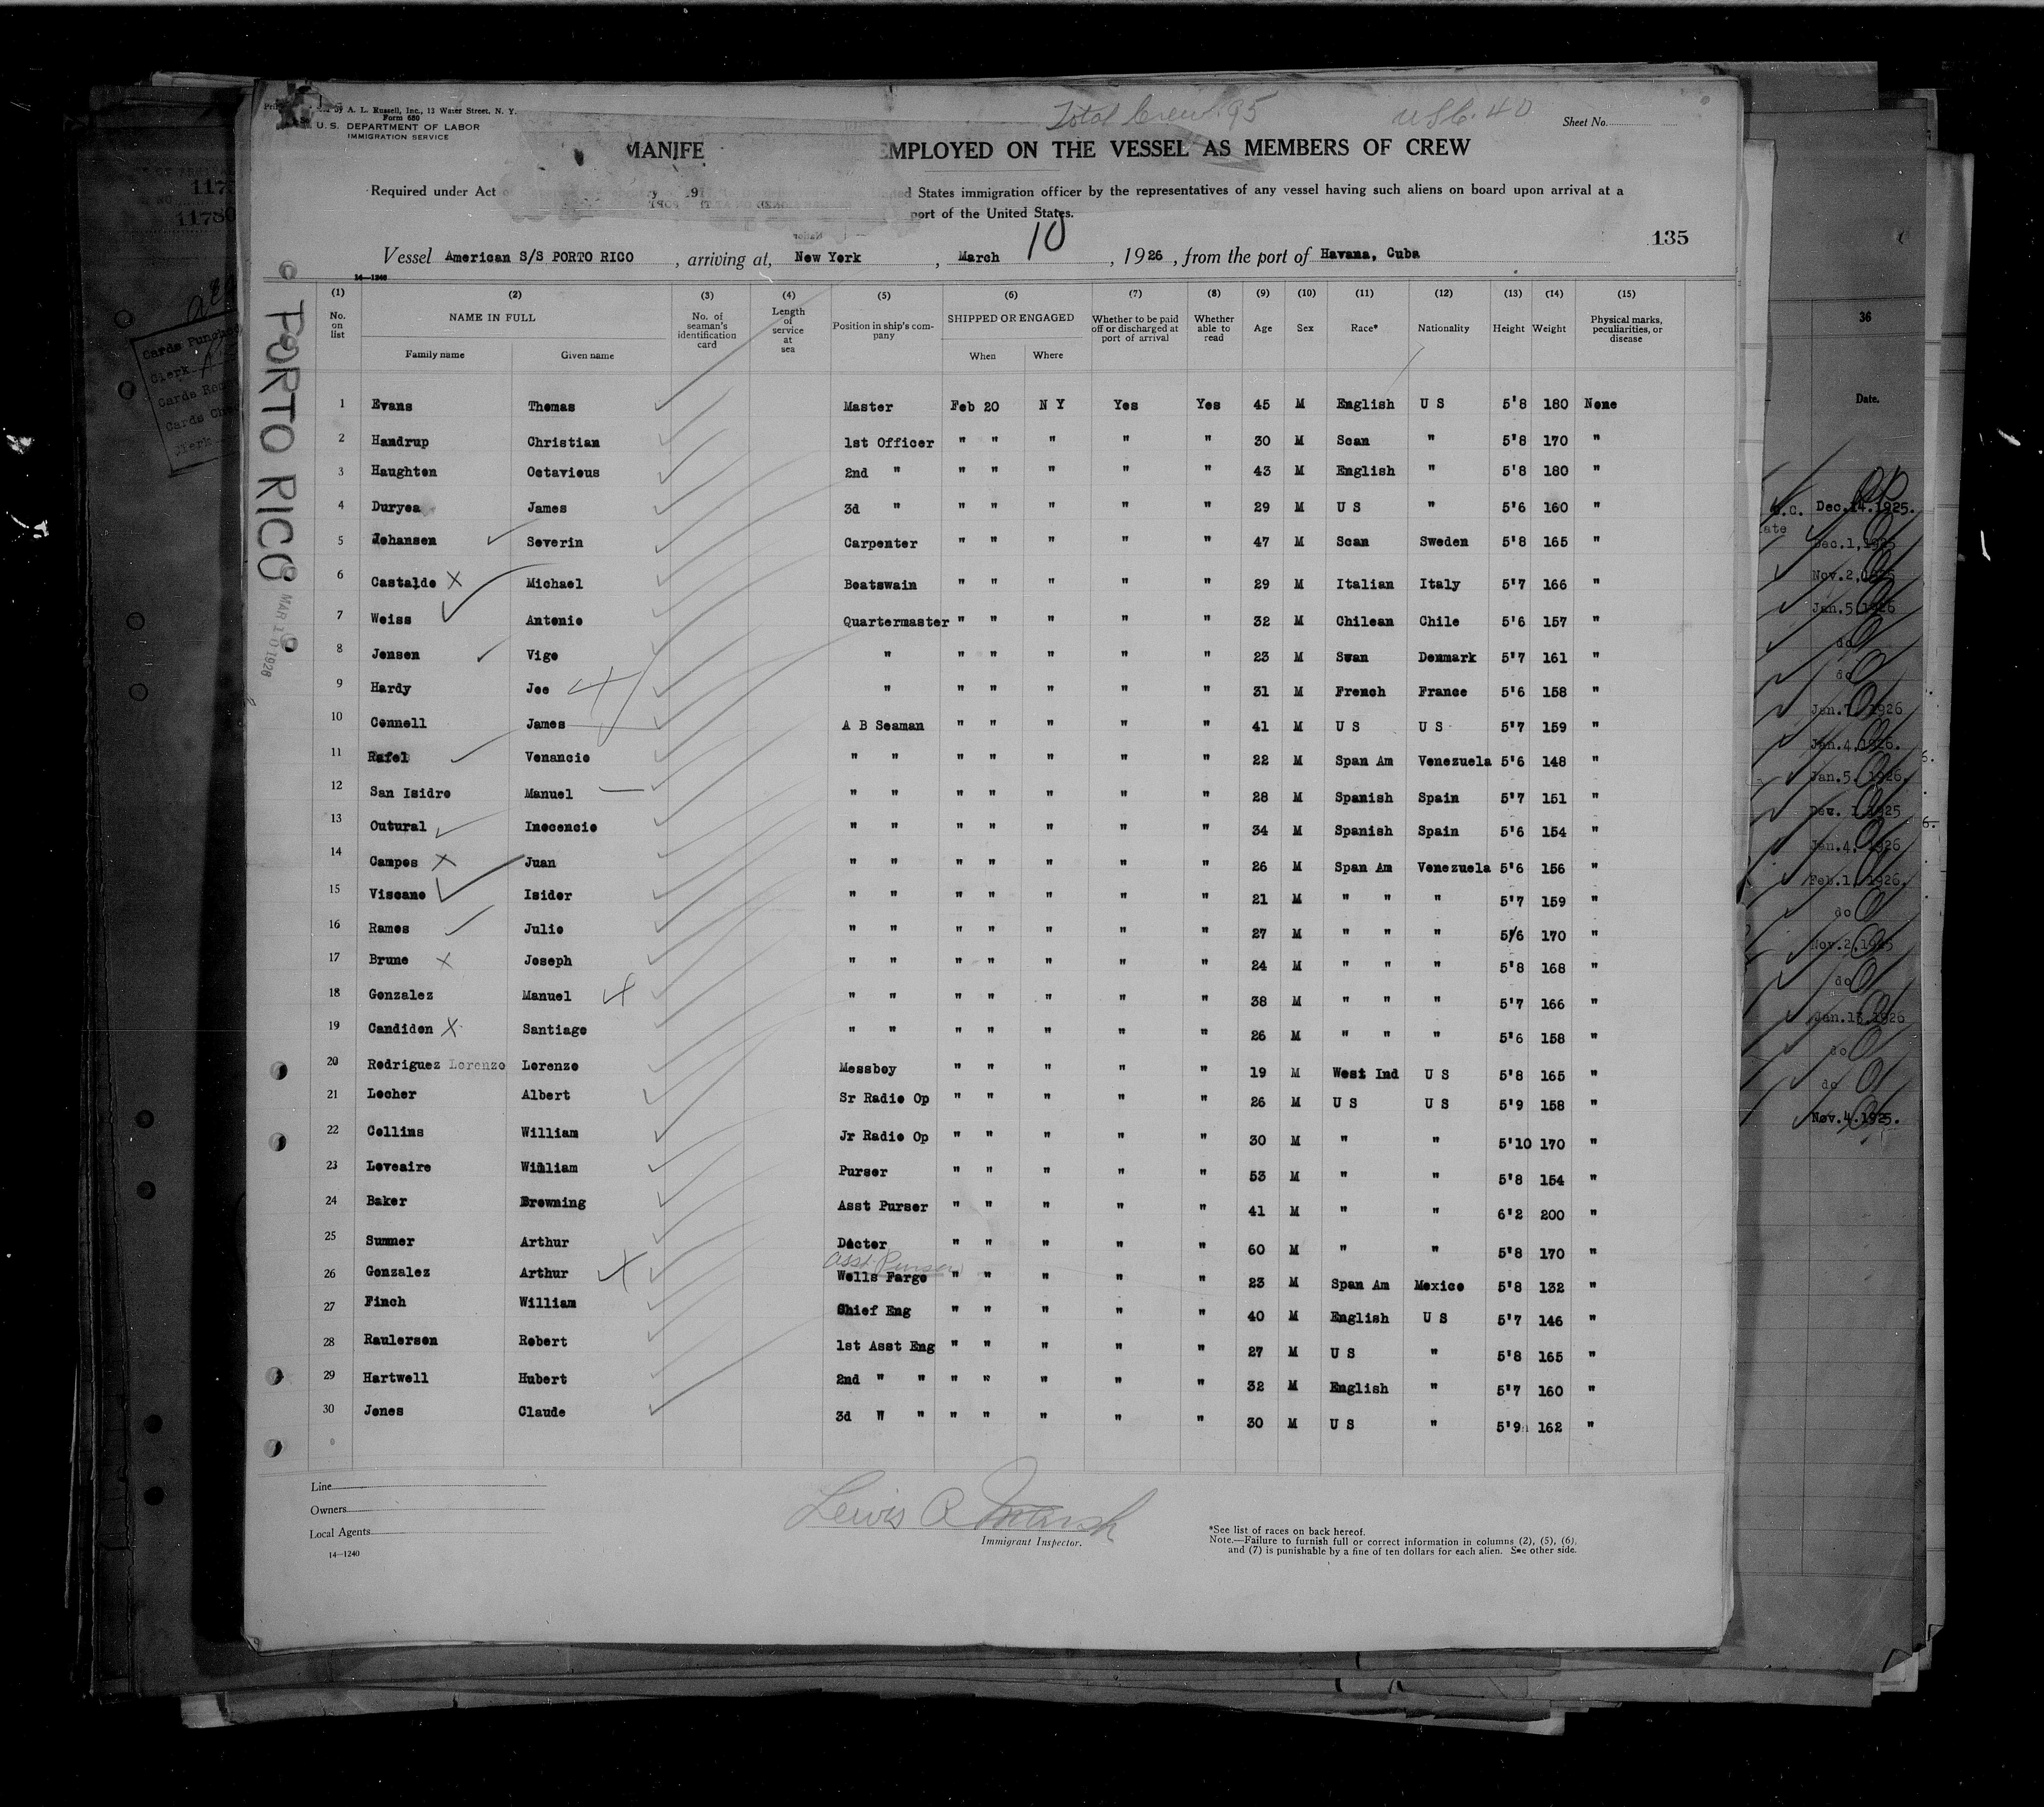 by A. L. Russell, Inc., 13 Water Street, N. Y.
Form 680
U. S. DEPARTMENT OF LABOR
IMMIGRATION SERVICE
Total Crew. 95
USC. 40
Sheet No.
135
MANIFE EMPLOYED ON THE VESSEL AS MEMBERS OF CREW
Required under Act States immigration officer by the representatives of any vessel having such aliens on board upon arrival at a
port of the United States.
Vessel American S/S PORTO RICO , arriving at, New York , March 10 , 1926 , from the port of Havana, Cuba
14—1240
PORTO RICO
MAR 10 1926
(1) (2) (3) (4) (5) (6) (7) (8) (9) (10) (11) (12) (13) (14) (15)
No. on list NAME IN FULL No. of seaman's identification card Length of service at sea Position in ship's company SHIPPED OR ENGAGED Whether to be paid off or discharged at port of arrival Whether able to read Age Sex Race* Nationality Height Weight Physical marks, peculiarities, or disease
Family name Given name When Where
1 Evans Thomas Master Feb 20 N Y Yes Yes 45 M English U S 5'8 180 None
2 Handrup Christian 1st Officer " " " " " 30 M Scan " 5'8 170 "
3 Haughton Octavious 2nd " " " " " " 43 M English " 5'8 180 "
4 Duryea James 3d " " " " " " 29 M U S " 5'6 160 "
5 Johansen Severin Carpenter " " " " " 47 M Scan Sweden 5'8 165 "
6 Castaldo X Michael Boatswain " " " " " 29 M Italian Italy 5'7 166 "
7 Weiss Antonio Quartermaster " " " " " 32 M Chilean Chile 5'6 157 "
8 Jensen Vigo " " " " " " 23 M Swan Denmark 5'7 161 "
9 Hardy Joe " " " " " " 31 M French France 5'6 158 "
10 Connell James A B Seaman " " " " " 41 M U S U S 5'7 159 "
11 Rafel Venancio " " " " " " " 22 M Span Am Venezuela 5'6 148 "
12 San Isidro Manuel " " " " " " " 28 M Spanish Spain 5'7 151 "
13 Outural Inocencio " " " " " " " 34 M Spanish Spain 5'6 154 "
14 Campos X Juan " " " " " " " 26 M Span Am Venezuela 5'6 156 "
15 Viscano Isider " " " " " " " 21 M " " " 5'7 159 "
16 Ramos Julio " " " " " " " 27 M " " " 5/6 170 "
17 Bruno X Joseph " " " " " " " 24 M " " " 5'8 168 "
18 Gonzalez Manuel X " " " " " " " 38 M " " " 5'7 166 "
19 Candiden X Santiago " " " " " " " 26 M " " " 5'6 158 "
20 Rodriguez Lorenzo Lorenzo Messboy " " " " " 19 M West Ind U S 5'8 165 "
21 Locher Albert Sr Radio Op " " " " " 26 M U S U S 5'9 158 "
22 Collins William Jr Radio Op " " " " " 30 M " " 5'10 170 "
23 Loveaire William Purser " " " " " 53 M " " 5'8 154 "
24 Baker Browning Asst Purser " " " " " 41 M " " 6'2 200 "
25 Sumner Arthur Doctor " " " " " 60 M " " 5'8 170 "
Asst Purser
26 Gonzalez Arthur X Wells Fargo " " " " " 23 M Span Am Mexico 5'8 132 "
27 Finch William Chief Eng " " " " " 40 M English U S 5'7 146 "
28 Raulerson Robert 1st Asst Eng " " " " " 27 M U S " 5'8 165 "
29 Hartwell Hubert 2nd " " " " " " " 32 M English " 5'7 160 "
30 Jones Claude 3d " " " " " " " 30 M U S " 5'9 162 "
Line
Owners
Local Agents
14—1240
Immigrant Inspector.
*See list of races on back hereof.
Note.—Failure to furnish full or correct information in columns (2), (5), (6),
and (7) is punishable by a fine of ten dollars for each alien. See other side.
11780
Cards Punched
Clerk
36
Date.
Dec.14.1925.
Dec.1,1925
Nov.2,1925
Jan.5,1926
do
do
Jan.7,1926
Jan.4,1926.
Jan.5,1926.
Dec. 1,1925
Jan.4,1926
Feb.1,1926.
do
Nov.2,1925
do
Jan.13,1926
do
do
Nov.4.1925.